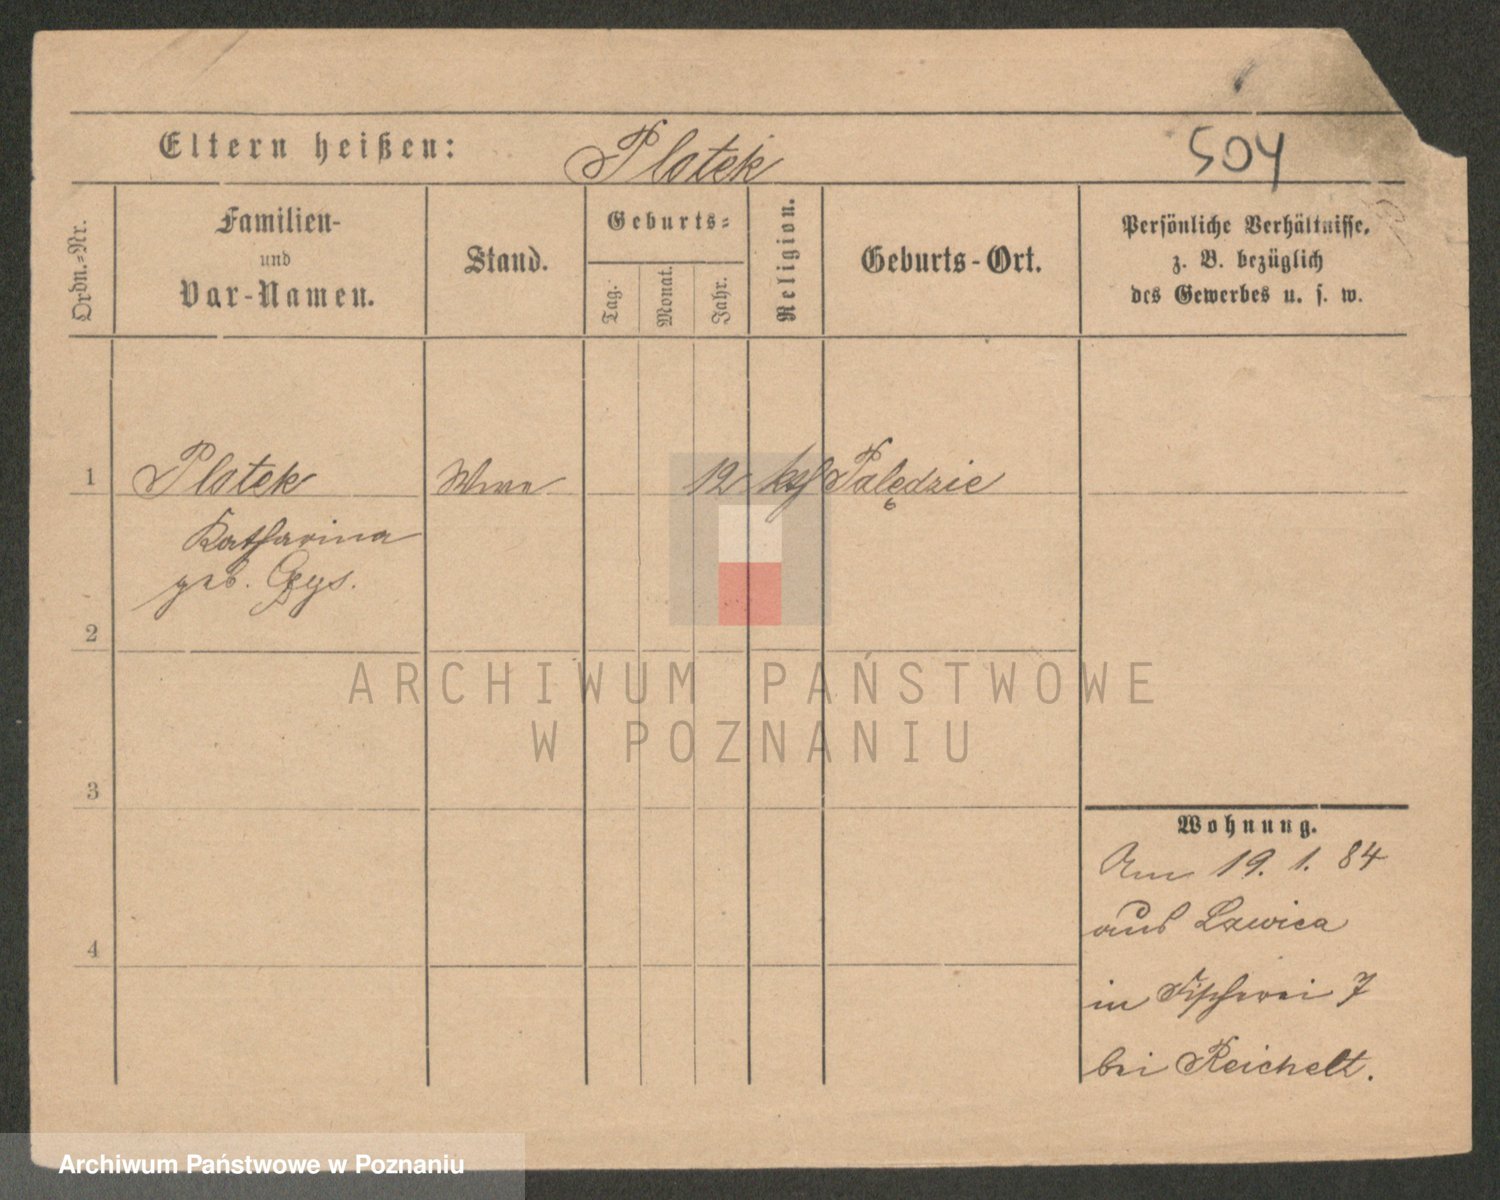 Eltern heißen: Plotek 504
Ordn.-Nr.
Familien-
und
Vor-Namen.
Stand.
Geburts-
Tag.
Monat.
Jahr.
Religion.
Geburts-Ort.
Persönliche Verhältnisse,
z. B. bezüglich
des Gewerbes u. s. w.
1 Plotek Wwe 12 kth Palędzie
Katharina
geb.
2
3
4
Wohnung.
Am 19. 1. 84
aus Lawica
in Fischerei 7
bei Reichelt.
ARCHIWUM PAŃSTWOWE
W POZNANIU
Archiwum Państwowe w Poznaniu